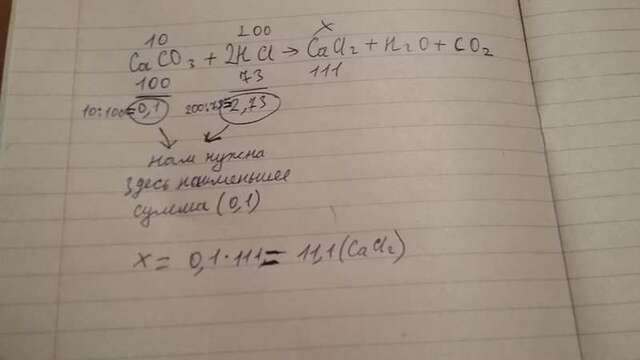 10 200 x
CaCO₃ + 2HCl → CaCl₂ + H₂O + CO₂
100 73 111
10:100=0,1 200:73=2,73
нам нужна
здесь наименьшее
сумма (0,1)
x = 0,1·111 = 11,1 (CaCl₂)